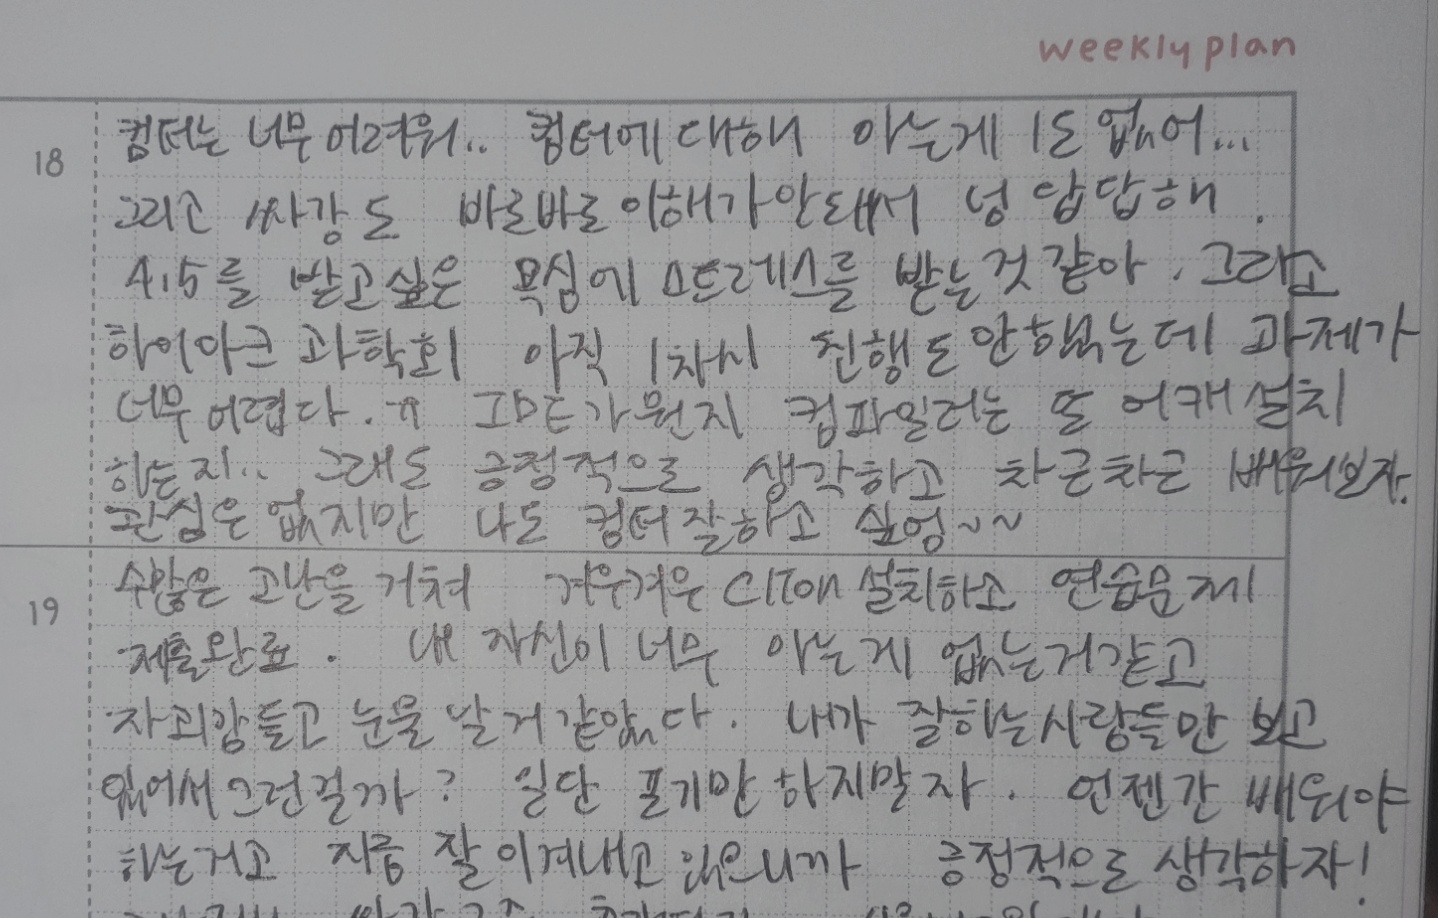 weekly plan
18
컴터는 너무 어려워.. 컴터에 대해 아는게 1도 없어...
그리고 싸강도 바로바로 이해가 안돼서 넝 답답해.
4.5를 받고싶은 욕심에 스트레스를 받는것 같아. 그리고
하이아크 과학회 아직 1차시 진행도 안했는데 과제가
너무 어렵다.ㅠ IDE가 뭔지 컴파일러는 또 어캐 설치
하는지.. 그래도 긍정적으로 생각하고 차근차근 배워보자.
관심은 없지만 나도 컴터 잘하고 싶엉~~
19
수많은 고난을 거쳐 겨우겨우 CLion 설치하고 연습문제
제출완료. 내 자신이 너무 아는게 없는거같고
자괴감들고 눈물 날거 같았다. 내가 잘하는사람들만 보고
있어서 그런걸까? 일단 포기만 하지말자. 언젠간 배워야
하는거고 지금 잘 이겨내고 있으니까 긍정적으로 생각하자!